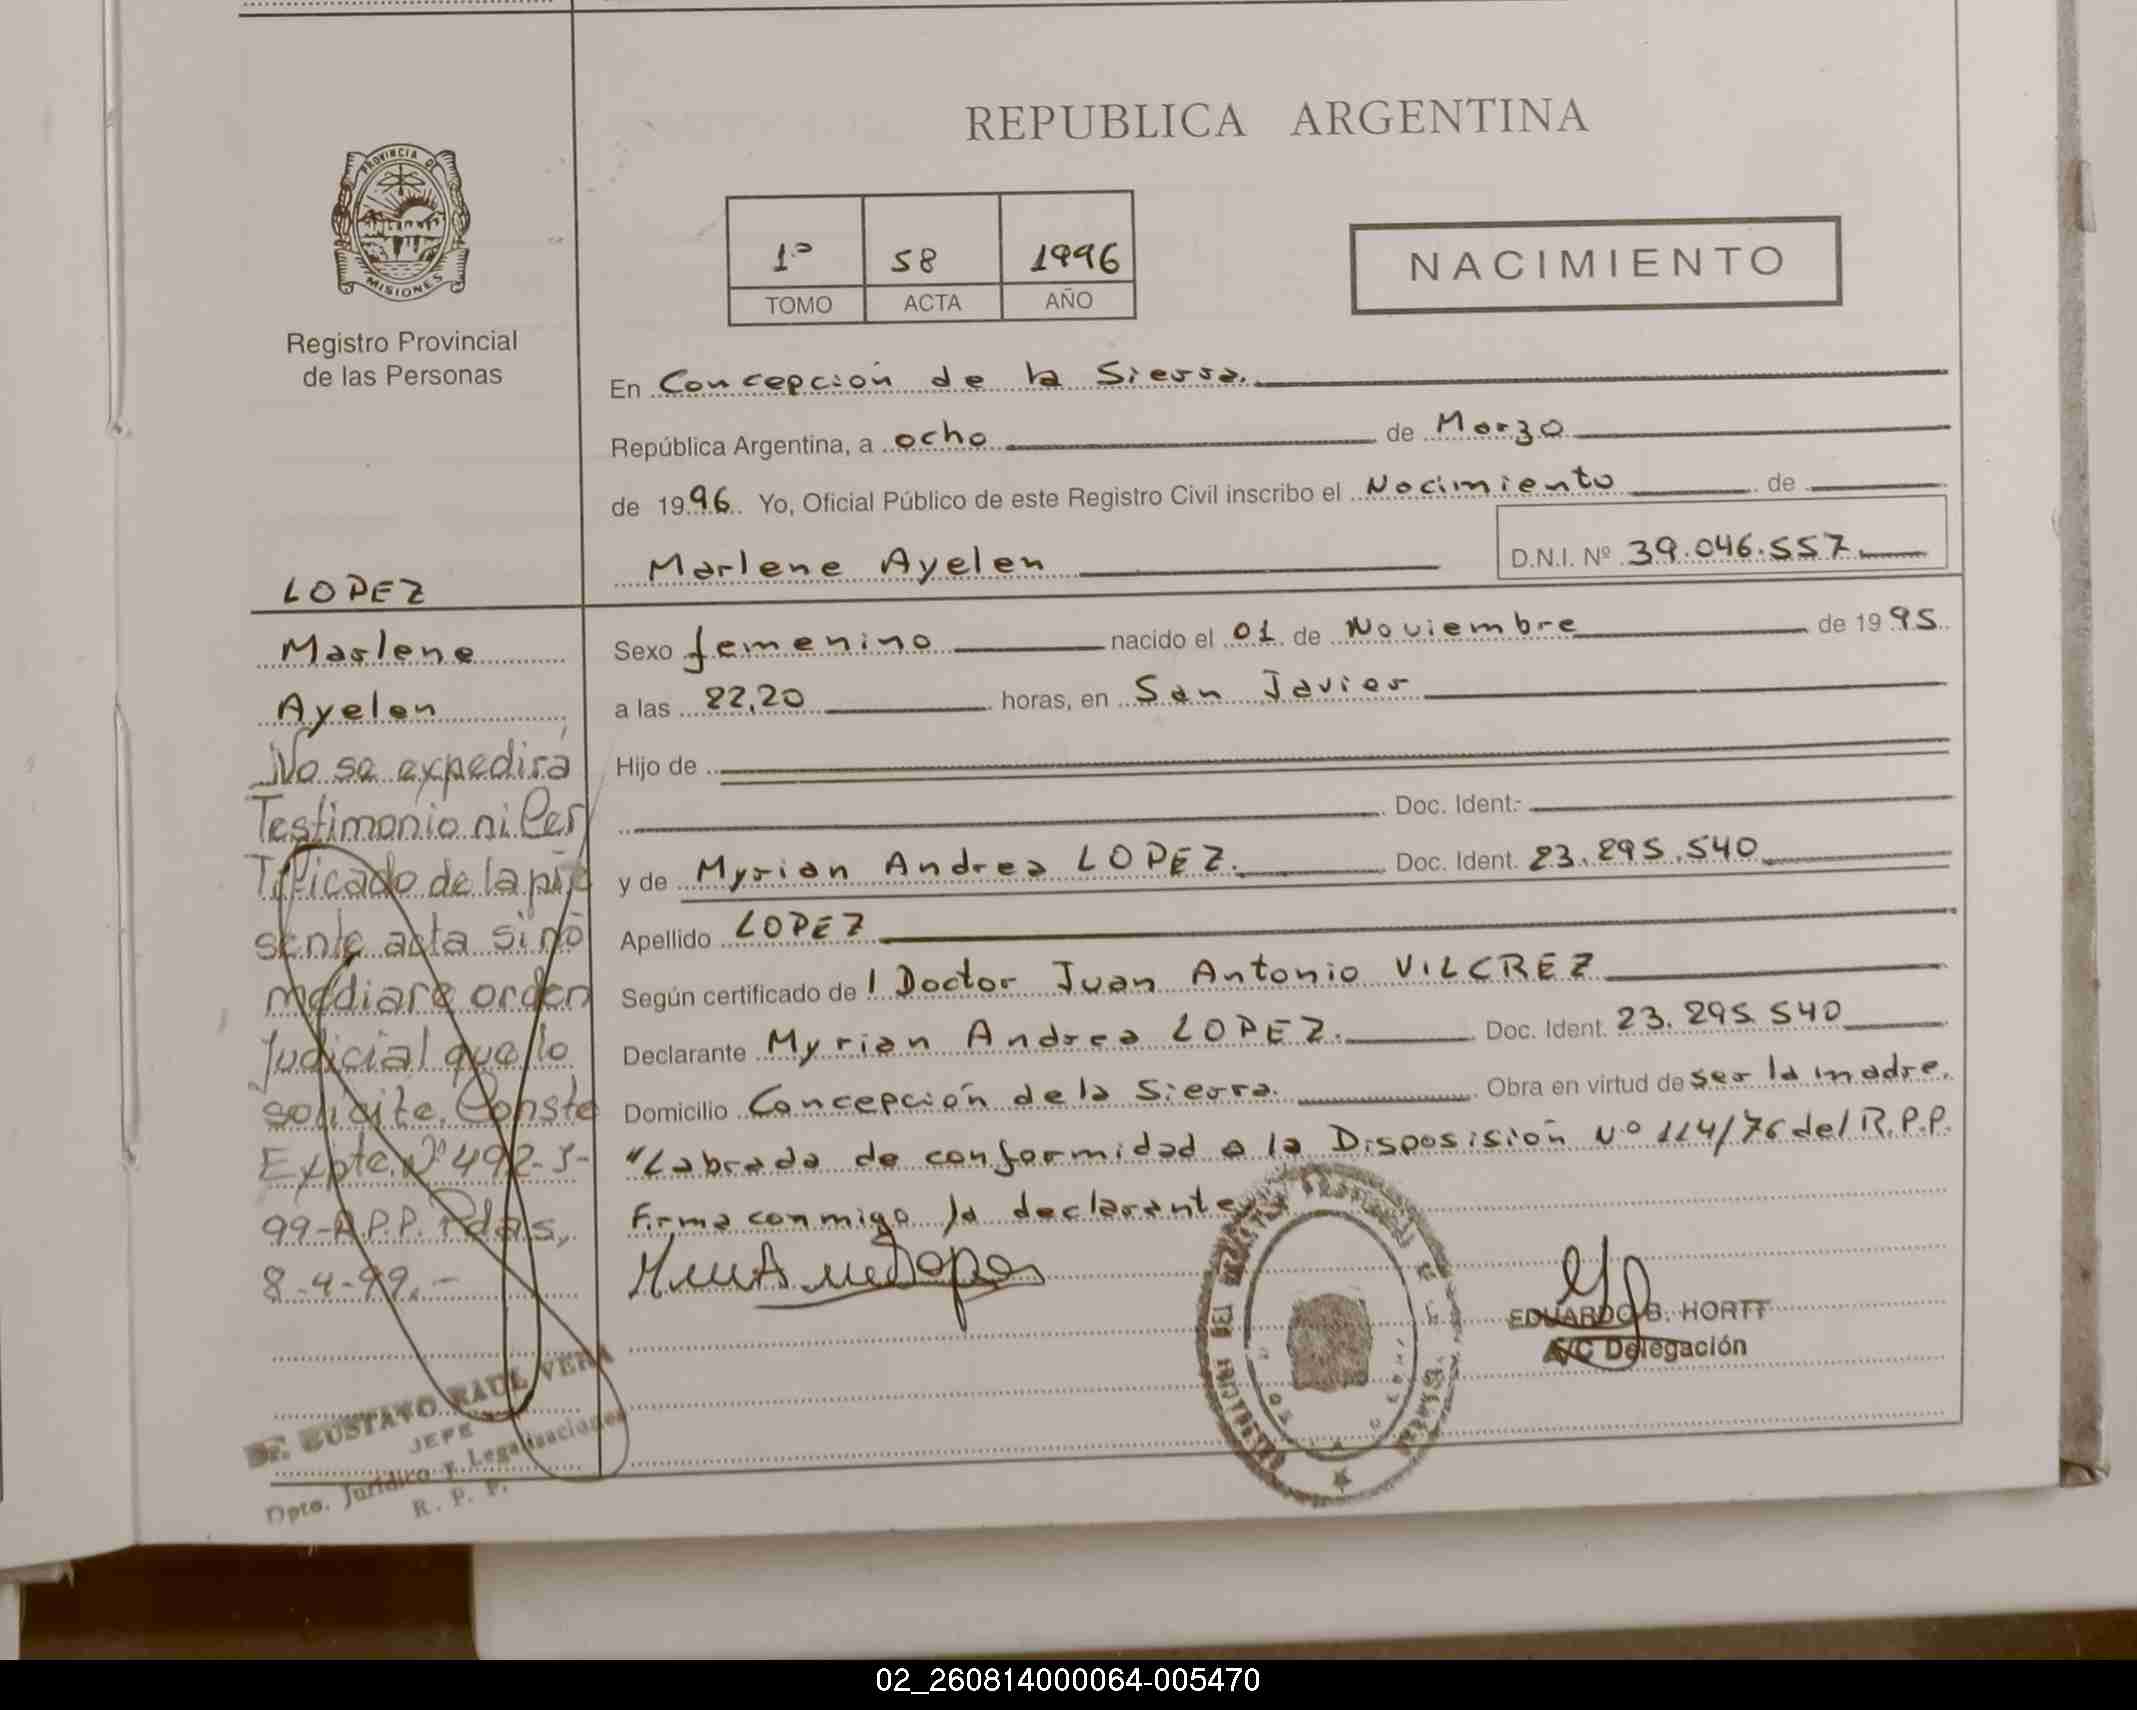 REPUBLICA ARGENTINA
PROVINCIA DE
MISIONES
Registro Provincial
de las Personas
1º 58 1996
TOMO ACTA AÑO
NACIMIENTO
En Concepción de la Sierra.
República Argentina, a ocho de Marzo
de 1996. Yo, Oficial Público de este Registro Civil inscribo el Nacimiento de
Marlene Ayelen D.N.I. Nº 39.046.557
LOPEZ
Marlene
Ayelen
No se expedirá
Testimonio ni Cer
Tificado de la pre
sente acta sino
mediare orden
Judicial que lo
solicite. Conste
Expte. Nº 492-J-
99-R.P.P. Pdas,
8-4-99.-
Dr. GUSTAVO RAUL VERA
JEFE
Dpto. Jurídico y Legalizaciones
R. P. P.
Sexo femenino nacido el 01 de Noviembre de 1995
a las 22,20 horas, en San Javier
Hijo de
Doc. Ident.
y de Myrian Andrea LOPEZ. Doc. Ident. 23.295.540
Apellido LOPEZ
Según certificado del Doctor Juan Antonio VILCREZ
Declarante Myrian Andrea LOPEZ. Doc. Ident. 23.295.540
Domicilio Concepción de la Sierra. Obra en virtud de ser la madre.
"Labrada de conformidad a la Disposisión Nº 114/76 del R.P.P.
Firma conmigo la declarante
EDUARDO B. HORTT
A/C Delegación
02_260814000064-005470